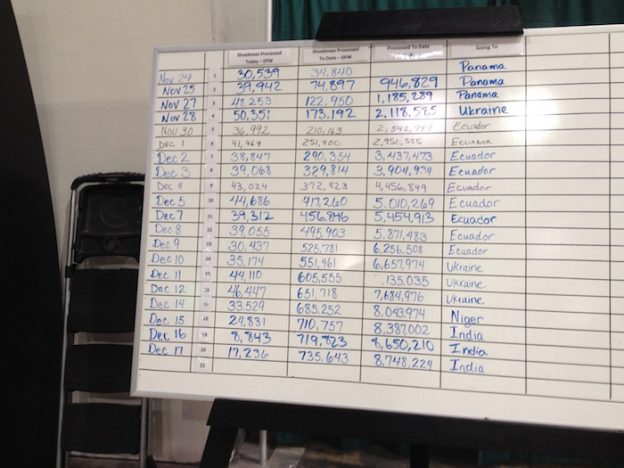 Shoeboxes Processed Today - DFW Shoeboxes Processed To Date - DFW Processed To Date Going To
Nov 24 1 30,539 34,840 Panama
Nov 25 2 39,942 74,897 946,829 Panama
Nov 27 3 48,253 122,950 1,185,289 Panama
Nov 28 4 50,351 173,192 2,118,585 Ukraine
Nov 30 5 36,992 210,163 Ecuador
Dec 1 6 41,469 251,400 2,950,555 Ecuador
Dec 2 7 38,847 290,354 3,437,473 Ecuador
Dec 3 8 39,068 329,814 3,904,974 Ecuador
Dec 4 9 43,024 372,823 4,456,849 Ecuador
Dec 5 10 44,686 417,260 5,010,269 Ecuador
Dec 7 11 39,312 456,846 5,454,913 Ecuador
Dec 8 12 39,055 495,903 5,871,483 Ecuador
Dec 9 13 30,437 526,781 6,256,508 Ecuador
Dec 10 14 35,174 551,461 6,657,974 Ukraine
Dec 11 15 44,110 605,555 135,035 Ukraine
Dec 12 16 46,447 651,718 7,684,976 Ukraine
Dec 14 17 33,529 685,252 8,043,974 Niger
Dec 15 18 24,831 710,757 8,387,002 India
Dec 16 19 8,843 719,823 8,650,210 India
Dec 17 20 17,236 735,643 8,748,224 India
21